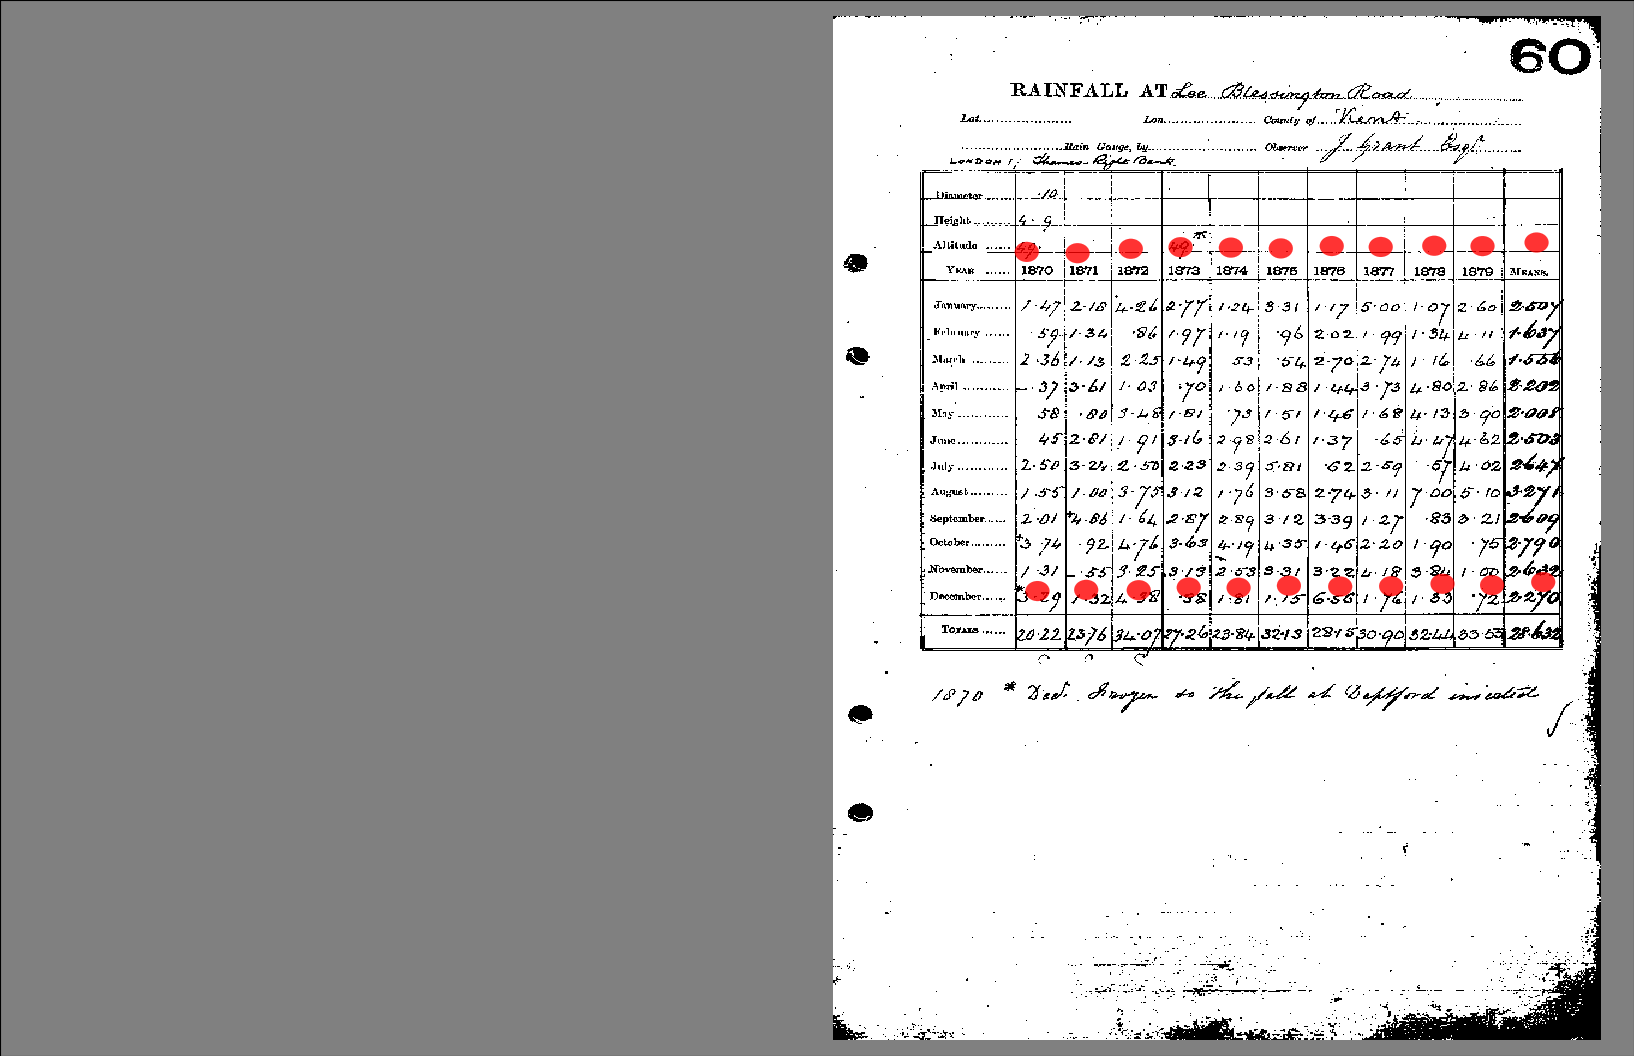 60
RAINFALL AT Lee Blessington Road
Lat. Lon. County of Kent
Rain Gauge, by Observer J Grant Esqr
LONDON 1, Thames Right Bank
Diameter ·10
Height 4 · 9
Altitude
YEAR 1870 1871 1872 1873 1874 1875 1876 1877 1878 1879 MEANS.
January 1·47 2·18 4·26 2·77 1·24 3·31 1·17 5·00 1·07 2·60 2·507
February ·59 1·34 ·86 1·97 1·19 ·96 2·02 1·99 1·34 4·11 1·637
March 2·36 1·13 2·25 1·49 53 ·54 2·70 2·74 1·16 ·66 1·556
April ·37 3·61 1·03 ·70 1·60 1·88 1·44 3·73 4·80 2·86 2·202
May 58 ·80 3·48 1·81 ·73 1·51 1·46 1·68 4·13 3·90 2·008
June 45 2·81 1·91 3·16 2·98 2·61 1·37 ·65 4·47 4·62 2·503
July 2·50 3·24 2·50 2·23 2·39 5·81 ·62 2·59 ·57 4·02 2·647
August 1·55 1·00 3·75 3·12 1·76 3·58 2·74 3·11 7·00 5·10 3·271
September 2·01 4·86 1·64 2·87 2·89 3·12 3·39 1·27 ·83 3·21 2·609
October 3·74 ·92 4·76 3·63 4·19 4·35 1·46 2·20 1·90 ·75 2·790
November 1·31 ·55 3·25 3·13 2·53 3·31 3·22 4·18 3·84 1·00 2·632
December 3·29 1·32 4·38 ·38 1·81 1·15 6·56 1·76 1·33 ·72 2·270
TOTALS 20·22 23·76 34·07 27·26 23·84 32·13 28·15 30·90 32·44 33·55 28·632
1870 * Dec. Frozen so the fall at Deptford inserted